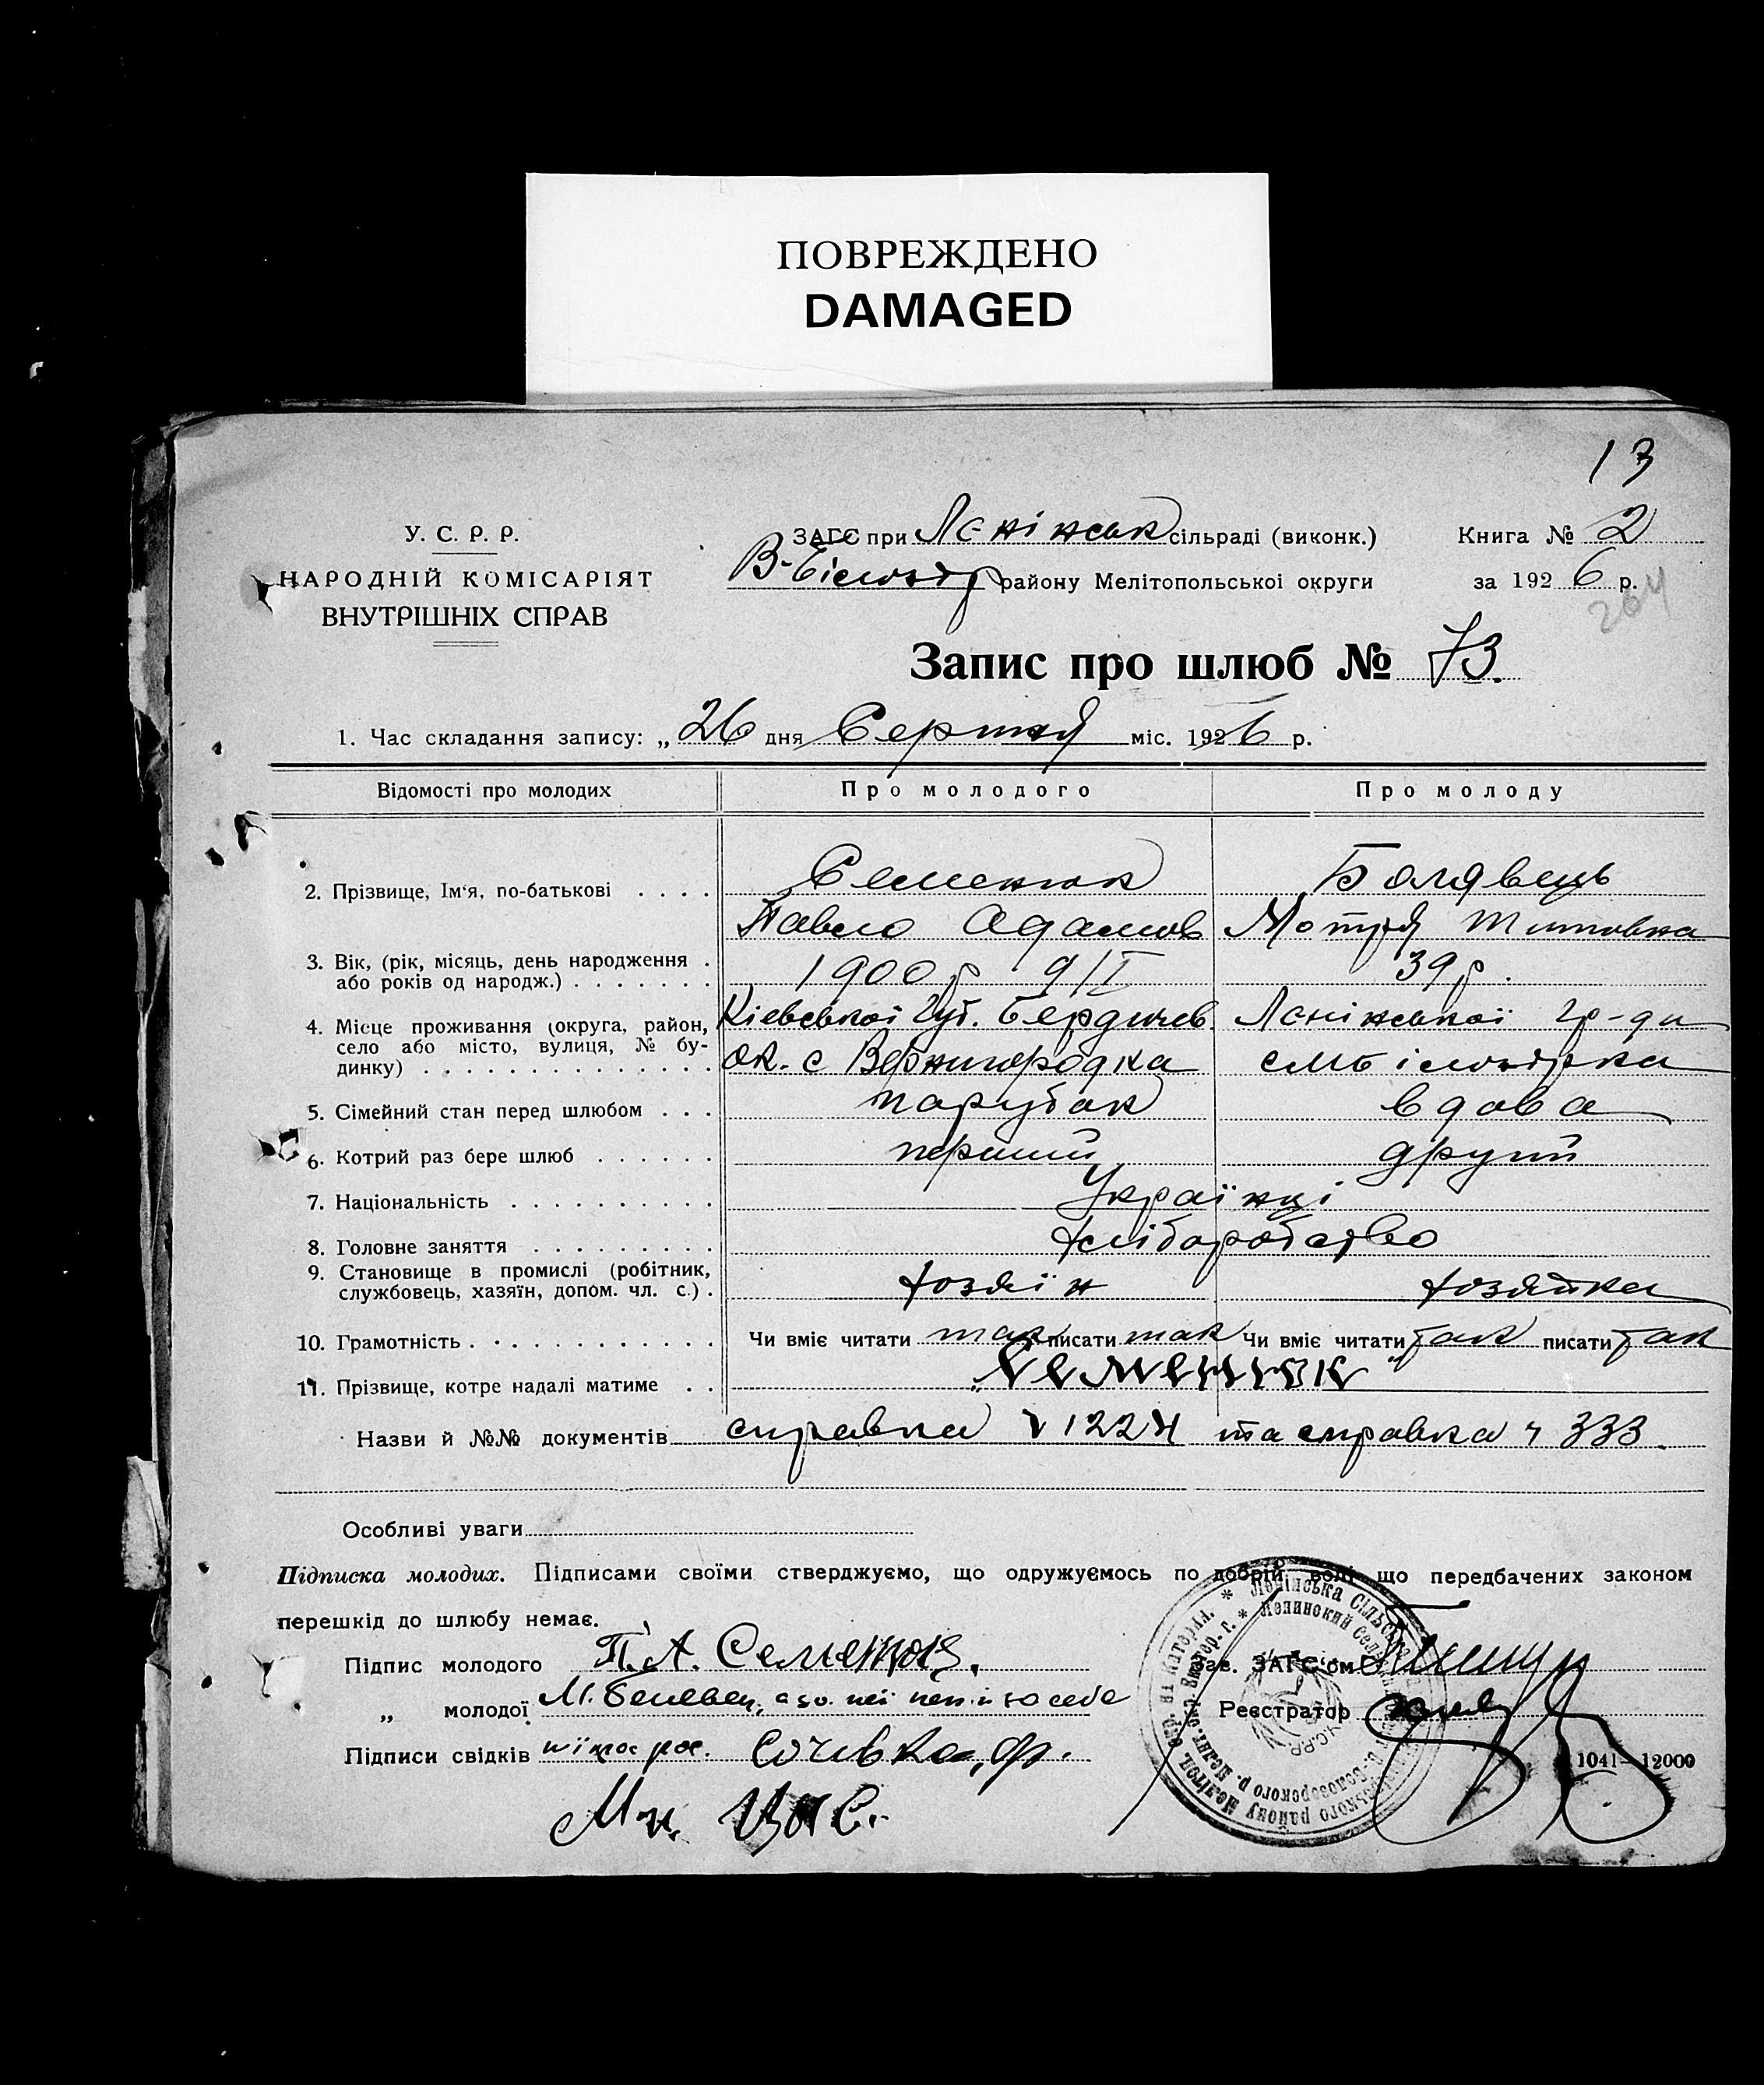 ПОВРЕЖДЕНО
DAMAGED
13
У. С. Р. Р.
НАРОДНІЙ КОМІСАРІЯТ
ВНУТРІШНІХ СПРАВ
ЗАГС при Лєнінськ сільраді (виконк.)
В-Білозір району Мелітопольської округи
Книга № 2
за 1926 р.
264
Запис про шлюб № 73.
1. Час складання запису: „ 26 дня Серпня міс. 1926 р.
Відомості про молодих
Про молодого
Про молоду
2. Прізвище, Ім'я, по-батькові . . . .
Семенюк
Павло Адамов
Мотря Титовна
3. Вік, (рік, місяць, день народження .
або років од народж.) . . . . . . .
1900 р 9/I
39 р.
4. Місце проживання (округа, район,
село або місто, вулиця, № бу-
динку) . . . . . . . . . . . . . .
Кіевської Губ. Бердичев.
ок. с Вернигородка
Лєнінської гр-ди
5. Сімейний стан перед шлюбом . . .
парубок
вдова
6. Котрий раз бере шлюб . . . . . .
перший
другий
7. Національність . . . . . . . . . .
Українці
8. Головне заняття . . . . . . . . .
хліборобство
9. Становище в промислі (робітник,
службовець, хазяїн, допом. чл. с.) .
хозяїн
хозяйка
10. Грамотність . . . . . . . . . . .
Чи вміє читати так писати так
Чи вміє читати так писати так
11. Прізвище, котре надалі матиме . .
„Семенюк"
Назви й №№ документів справка ч 1224 та справка ч 333.
Особливі уваги
Підписка молодих. Підписами своїми стверджуємо, що одружуємось по добрій волі що передбачених законом
перешкід до шлюбу немає.
Підпис молодого П. А. Семенюк.
„ молодої М.
Підписи свідків
Зав. ЗАГС'ом
Реєстратор
1041—12000